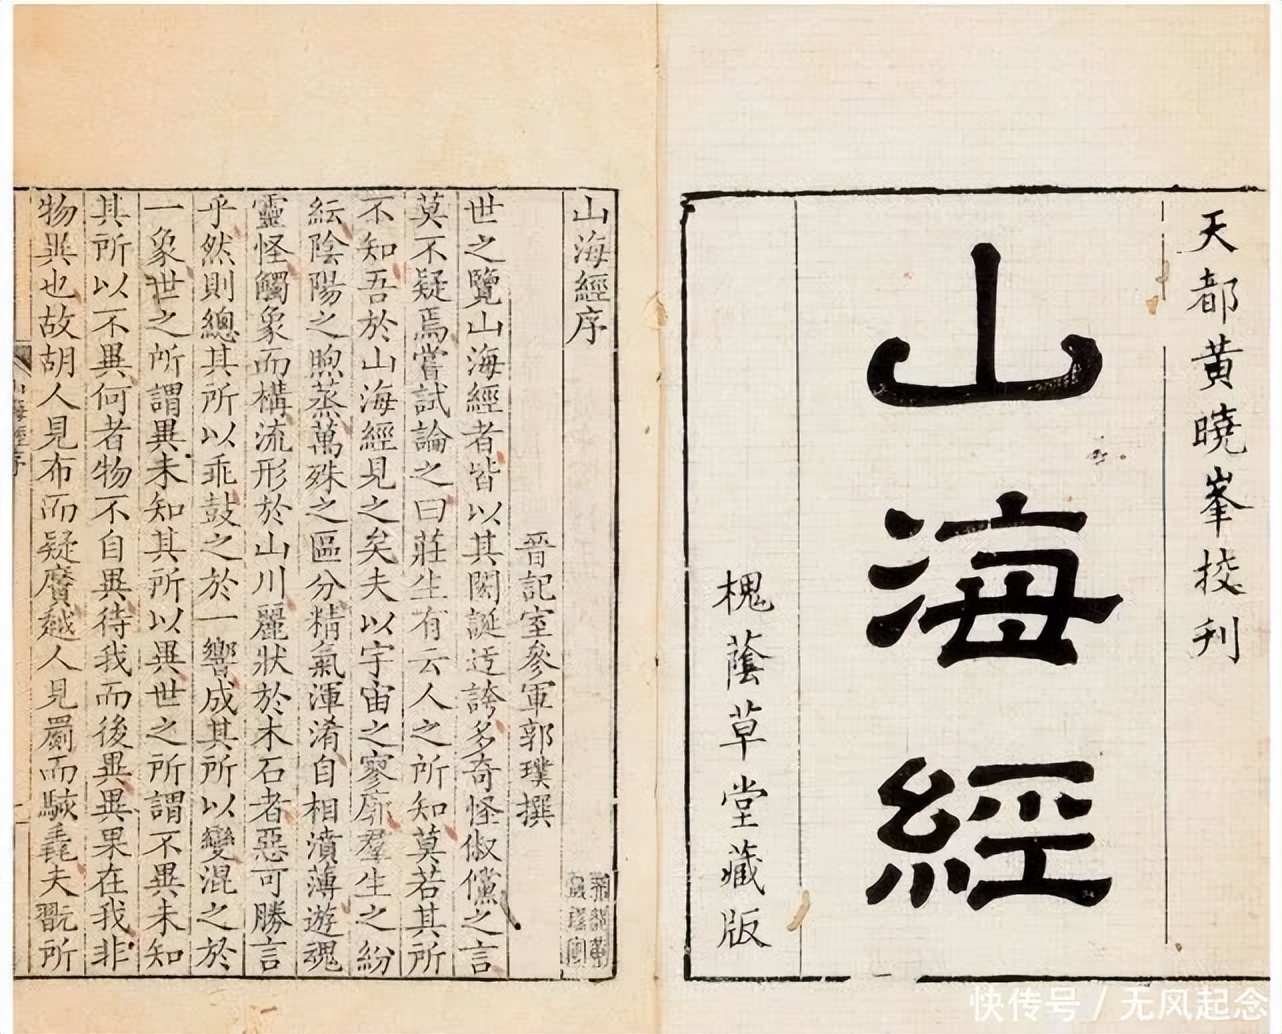 天都黄曉峯挍刊
山海經
槐蔭草堂藏版
山海經序
晉記室參軍郭璞撰
世之覽山海經者皆以其閎誕迂誇多奇怪俶儻之言
莫不疑焉嘗試論之曰莊生有云人之所知莫若其所
不知吾於山海經見之矣夫以宇宙之寥廓羣生之紛
紜陰陽之煦蒸萬殊之區分精氣渾淆自相濆薄遊魂
靈怪觸象而構流形於山川麗狀於木石者惡可勝言
乎然則總其所以乖鼓之於一響成其所以變混之於
一象世之所謂異未知其所以異世之所謂不異未知
其所以不異何者物不自異待我而後異異果在我非
物異也故胡人見布而疑黂越人見罽而駭毳夫翫所
山海經序
快传号 / 无风起念